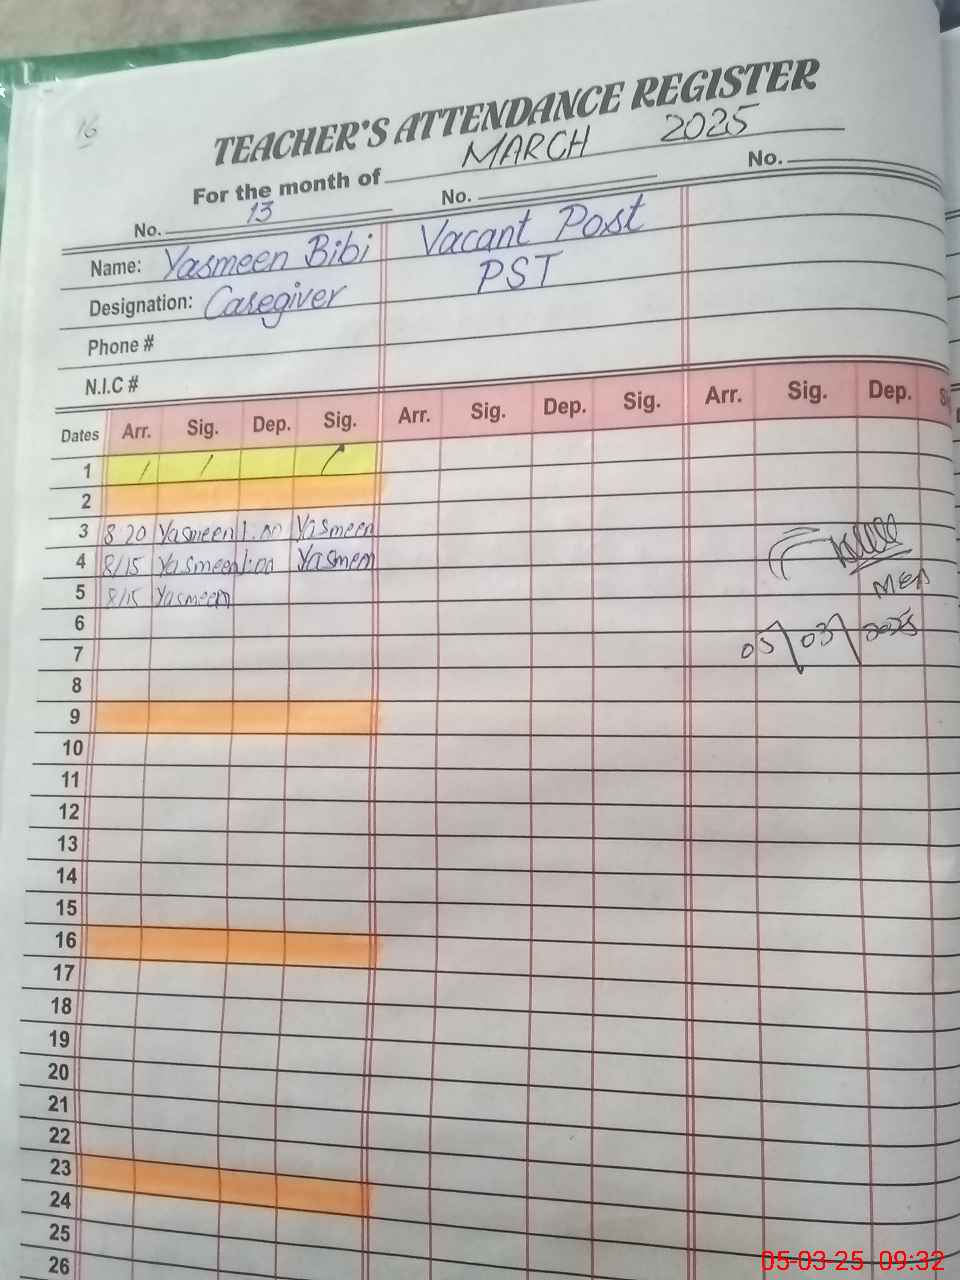 16
TEACHER'S ATTENDANCE REGISTER
For the month of MARCH 2025
No. 13 No. No.
Name: Yasmeen Bibi Vacant Post
Designation: Caregiver PST
Phone #
N.I.C #
Dates Arr. Sig. Dep. Sig. Arr. Sig. Dep. Sig. Arr. Sig. Dep. S
1 / / /
2
3 8:20 Yasmeen 1:00 Yasmeen
4 8/15 Yasmeen 1:00 Yasmeen
5 8/15 Yasmeen
MEA
6
05/03/2025
7
8
9
10
11
12
13
14
15
16
17
18
19
20
21
22
23
24
25
26
05-03-25 09:32